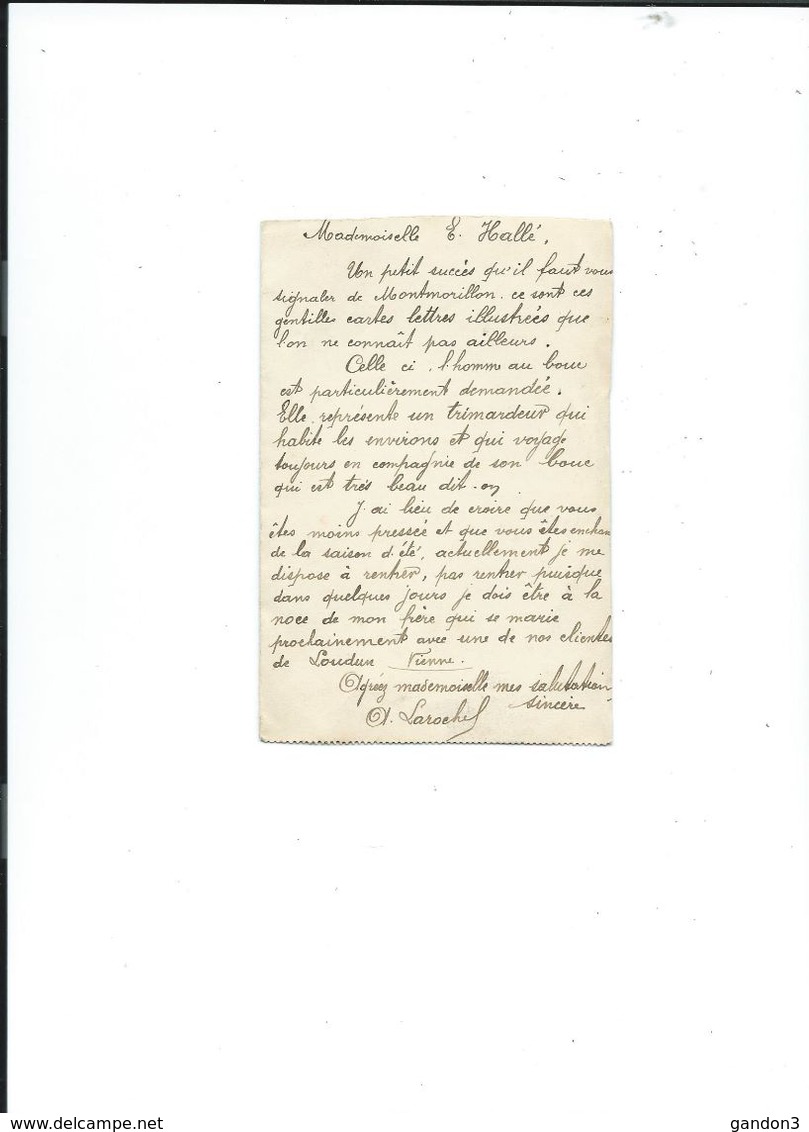 Mademoiselle E. Hallé,
Un petit succès qu'il faut vous
signaler de Montmorillon. ce sont ces
gentilles cartes lettres illustrées que
l'on ne connaît pas ailleurs.
Celle ci, l'homme au bouc
est particulièrement demandée.
Elle représente un trimardeur qui
habite les environs et qui voyage
toujours en compagnie de son bouc
qui est très beau dit-on
J'ai lieu de croire que vous
êtes moins pressée et que vous êtes enchan
de la saison d'été, actuellement je me
dispose à rentrer, pas rentrer puisque
dans quelques jours je dois être à la
noce de mon frère qui se marie
prochainement avec une de nos clientes
de Loudun Vienne.
Agréez mademoiselle mes salutation
sincère
A. Laroche
www.delcampe.net
gandon3